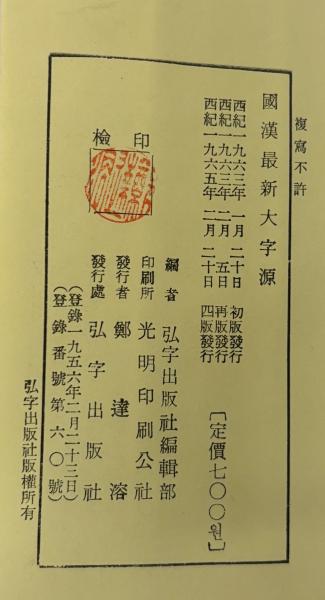 複寫不許
國漢最新大字源
西紀一九六三年 一月 二十日 初版發行
西紀一九六三年 二月 五日 再版發行
西紀一九六五年 二月 二十日 四版發行
[定價七〇〇원]
印
檢
編者 弘字出版社編輯部
印刷所 光明印刷公社
發行者 鄭達溶
發行處 弘字出版社
(登錄一九五六年二月二十三日)
(登錄番號第六〇號)
弘字出版社版權所有